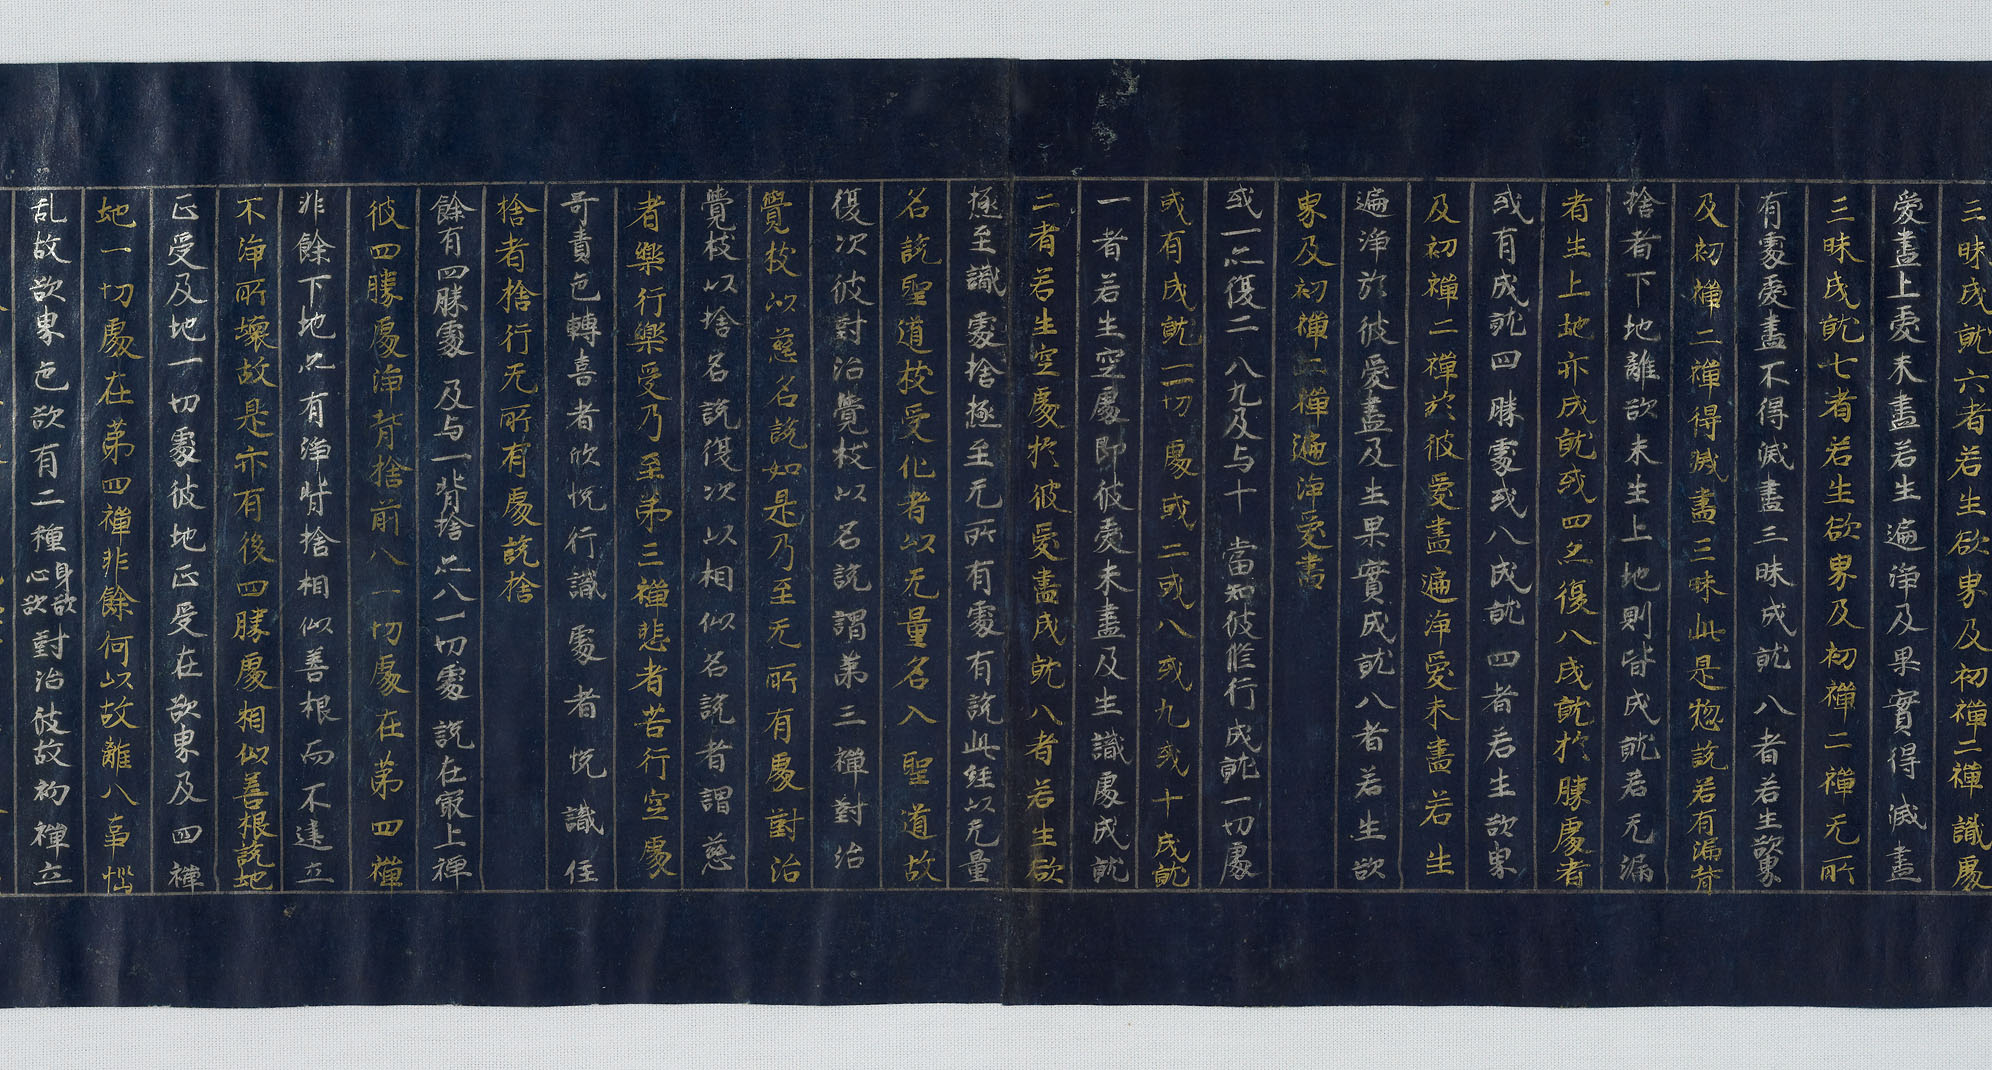 三昧成就六者若生欲界及初禪二禪識處
愛盡上愛未盡若生遍淨及果實得滅盡
三昧成就七者若生欲界及初禪二禪无所
有處愛盡不得滅盡三昧成就八者若生欲界
及初禪二禪得滅盡三昧此是惣說若有漏背
捨者下地離欲未生上地則皆成就若无漏
者生上地亦成就或四亦復八成就於勝處者
或有成就四勝處或八成就四者若生欲界
及初禪二禪於彼愛盡遍淨愛未盡若生
遍淨於彼愛盡及生果實成就八者若生欲
界及初禪二禪遍淨愛盡
或一亦復二八九及与十當知彼脩行成就一切處
或有成就一一切處或二或八或九或十成就
一者若生空處即彼愛未盡及生識處成就
二者若生空處於彼愛盡成就八者若生欲
極至識處捨極至无所有處有說此經以无量
名說聖道枝受化者以无量名入聖道故
復次彼對治覺枝以名說謂第三禪對治
覺枝以慈名說如是乃至无所有處對治
覺枝以捨名說復次以相似名說者謂慈
者樂行樂受乃至第三禪悲者苦行空處
哥責色轉喜者欣悅行識處者悅識住
捨者捨行无所有處說捨
餘有四勝處及与一背捨亦八一切處說在最上禪
彼四勝處淨背捨前八一切處在第四禪
非餘下地亦有淨背捨相似善根而不遠立
不淨所壞故是亦有後四勝處相似善根說地
正受及地一切處彼地正受在欲界及四禪
地一切處在第四禪非餘何以故離八事惱
乱故欲界色欲有二種身欲心欲對治彼故初禪立